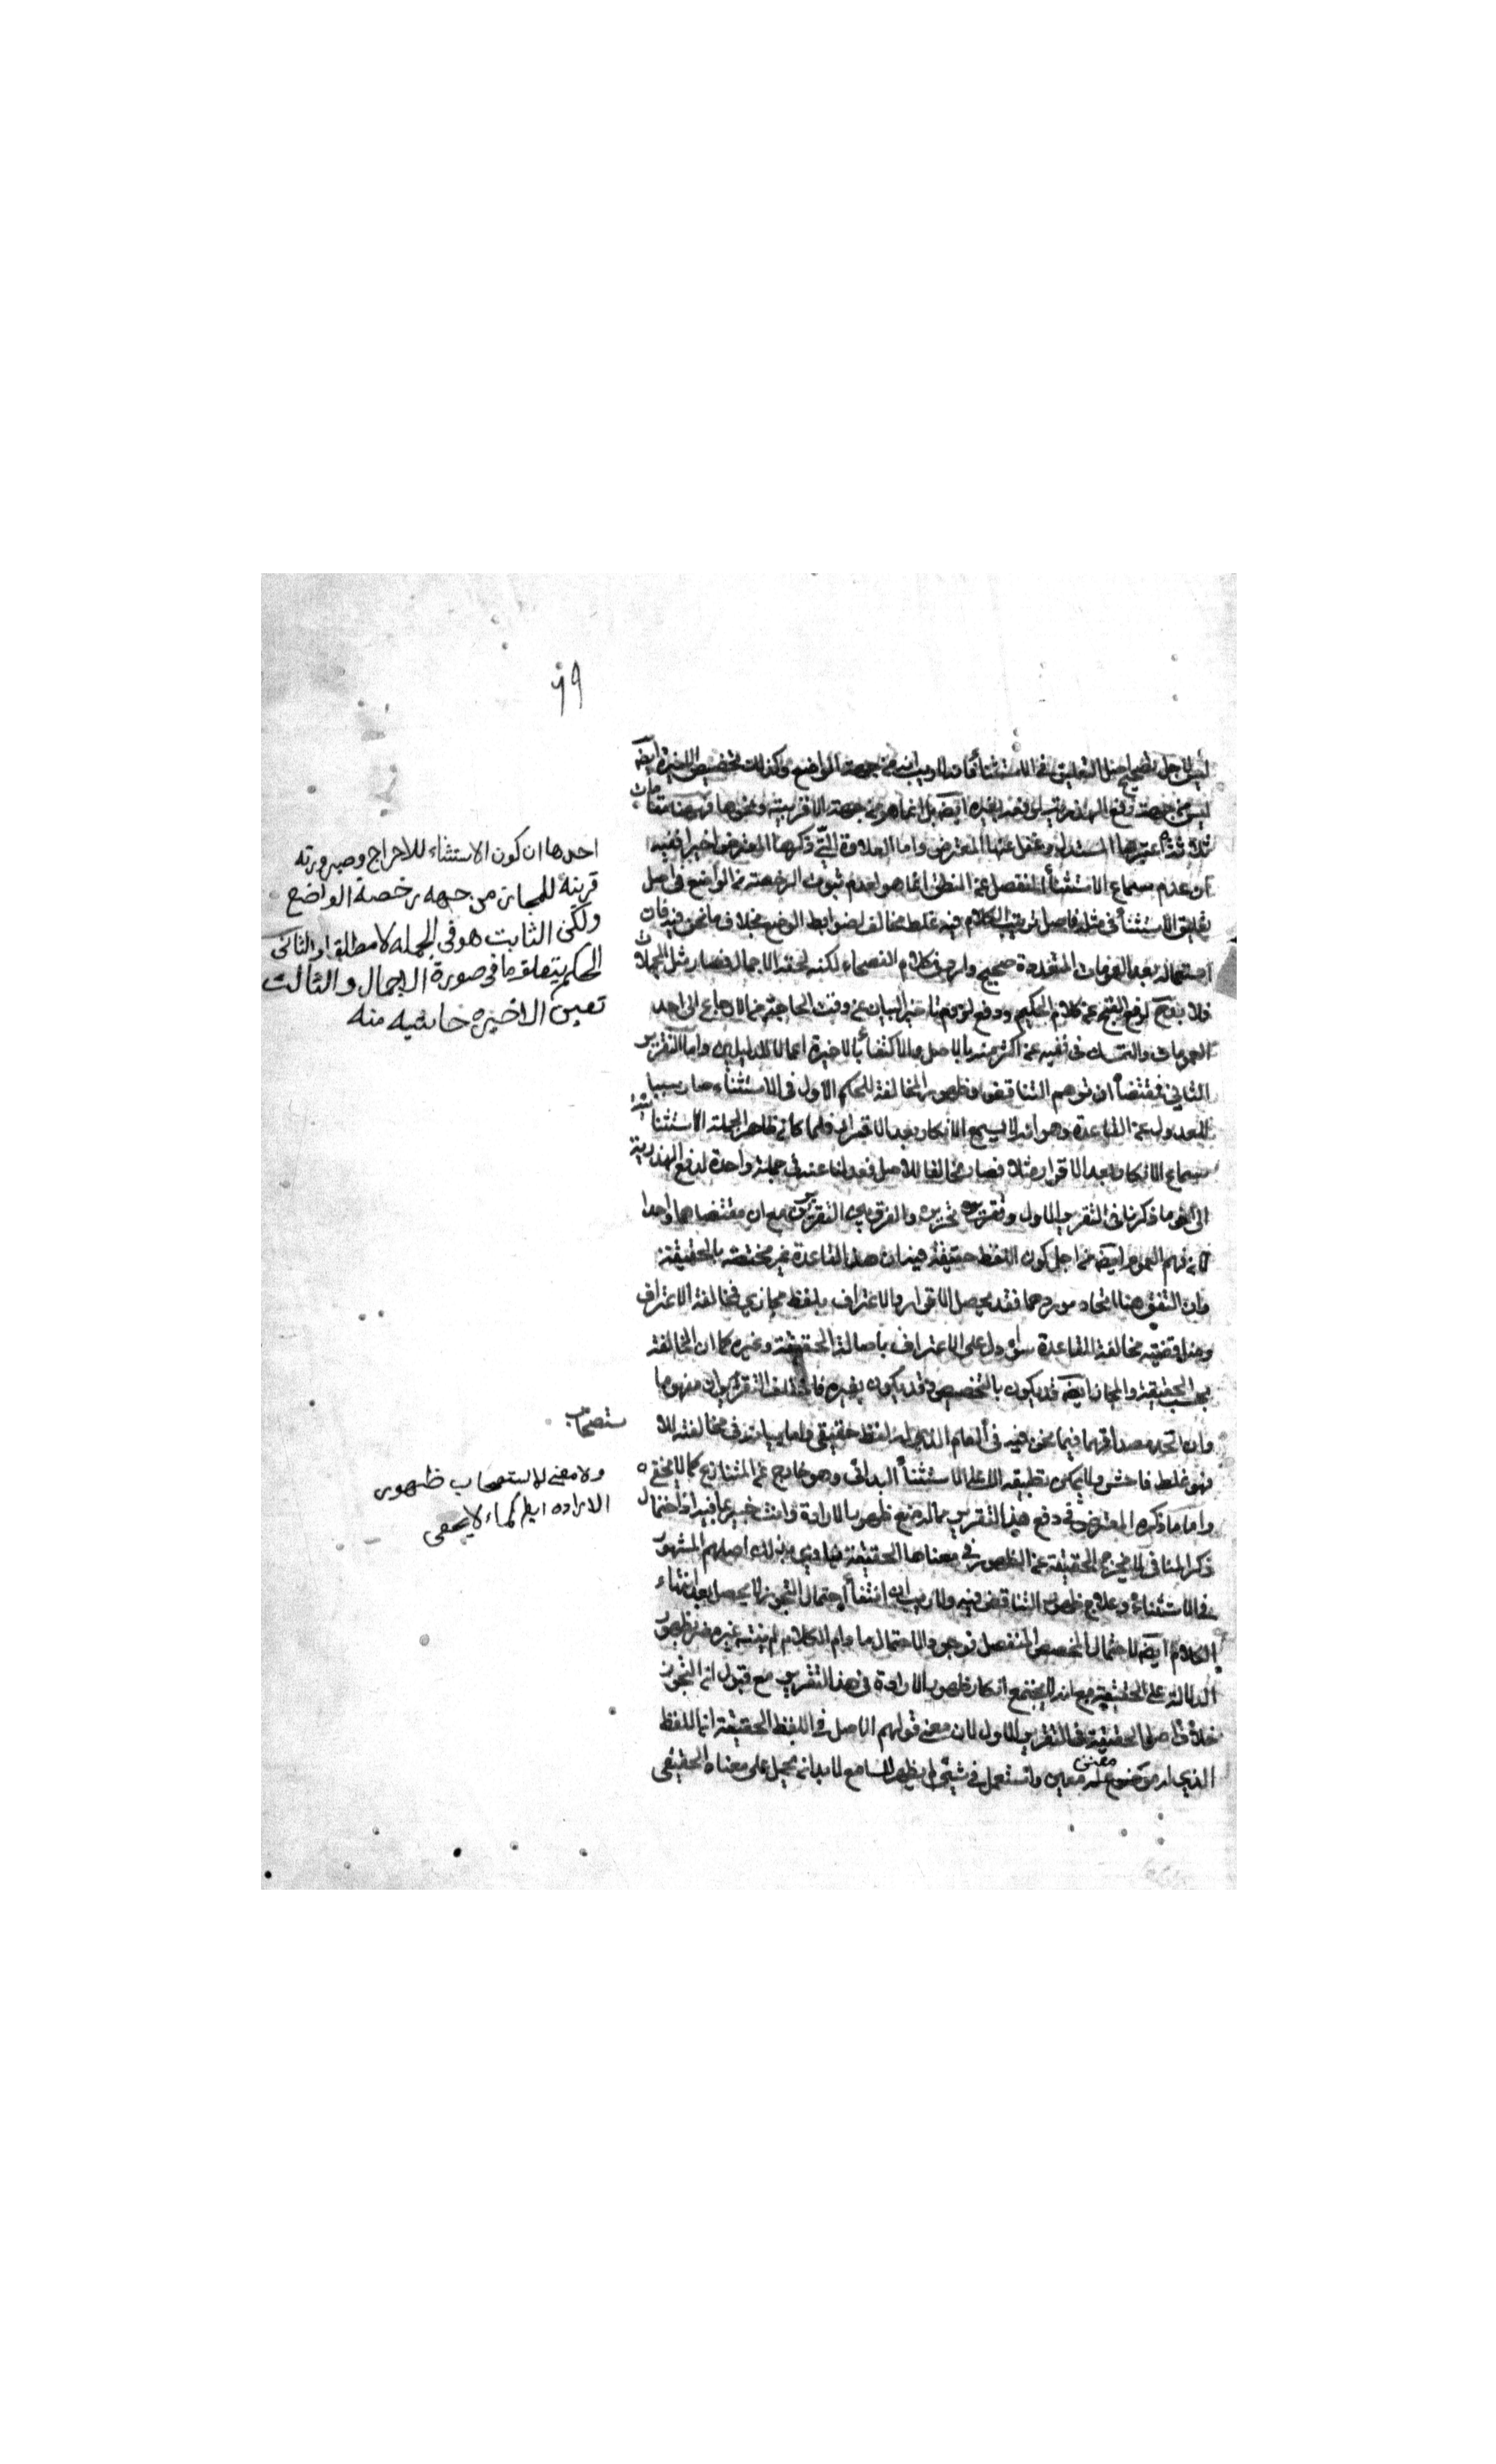 ٦٩
ليس لاجل تصحيح اصل التعليق في الاستثناء فانه لا ريب انه من جهة الواضع وكذلك تخصيص الاخيرة ايضا
ليس من جهة دفع الهذرية بل وغيره ايضا بل انما هو من جهة الاقربية ونحوها فههنا مقامات
ثلاثة اعتبرها المستدل وغفل عنها المعترض واما العلاوة التي ذكرها المعترض اخيرا ففيه
ان عدم سماع الاستثناء المنفصل عن النطق انما هو لعدم ثبوت الرخصة من الواضع في اصل
تعليق الاستثناء في مثله فاصل ترتيب الكلام فيه غلط مخالف لضوابط الوضع بخلاف ما نحن فيه فان
استعماله بعد العمومات المتعددة صحيح وارد في كلام الفصحاء لكنه لحقه الاجمال فصار مثل المجملات
فلا بد لرفع القبح عن كلام الحكيم ودفع لزوم تاخير البيان عن وقت الحاجة من الارجاع الى احد
العمومات والتمسك في نفيه عن اكثر منه بالاصل والاكتفاء بالاخيرة اعمالا للدليلين واما التقرير
الثاني فمقتضاه ان توهم التناقض وظهور المخالفة للحكم الاول في الاستثناء صار سببا
للعدول عن القاعدة وهو انه لا يسمع الانكار بعد الاقرار فلما كان ظاهر الجملة الاستثنائية
سماع الانكار بعد الاقرار مثلا فصار مخالفا للاصل فعدلنا عنه في جملة واحدة لدفع الهذرية
الى اخر ما ذكرنا في التقرير الاول وتقريره تحريره والفرق بين التقريرين مع ان مقتضاهما واحد
لان فهم العموم ايضا من اجل كون اللفظ حقيقة فيه ان هذا القاعدة غير مختصة بالحقيقة
وان اتفق هنا اتحاد موردهما فقد يحصل الاقرار والاعتراف بلفظ مجازي فمخالفة الاعتراف
ومناقضته مخالفة للقاعدة سواء دل على الاعتراف باصالة الحقيقة وغيره كما ان المخالفة
بحسب الحقيقة والمجاز ايضا قد يكون بالتخصيص وقد يكون بغيره فاختلف التقريران مفهوما
وان اتحد مصداقهما فيما نحن فيه في العام الذي له لفظ حقيقي واما بيانه في مخالفته للا
ستصحاب
فهو غلط فاحش ولا يمكن تطبيقه الا على الاستثناء البدائي وهو خارج عن المتنازع كما لا يخفى
واما ما ذكره المعترض في دفع هذا التقرير بمالة منع ظهور الارادة وانت خبير بما فيه اذ احتمال
ذكر المنافي لا يخرج الحقيقة عن الظهور في معناها الحقيقة وينادي بذلك اصلهم المشهور
في الاستثناء وعلاج ظهور التناقض فيه ولا ريب ان انتفاء احتمال التجوز لا يحصل بعد انتهاء
الكلام ايضا لاحتمال المخصص المنفصل فوجود الاحتمال ما دام الكلام لم ينته غير مضر بظهور
الدلالة على الحقيقة مع انه لا يجتمع انكار ظهور الارادة في هذا التقرير مع قبول ان التجوز
خلاف اصل الحقيقة في التقرير الاول لان معنى قولهم الاصل في اللفظ الحقيقة ان اللفظ
الذي له موضوع له معين معنى واستعمل في شيء لم يظهر للسامع لا بد ان يحمل على معناه الحقيقي
احدها ان كون الاستثناء للاخراج وصيرورته
قرينه للمجاز من جهه رخصة الواضع
ولكن الثابت هو في الجمله لا مطلقا والثاني
الحكم بتعلق ما في صورة الاجمال والثالث
تعيين الاخيره حاشيه منه
ولا معنى لاستصحاب ظهور
الاراده ايضا كما لا يخفى